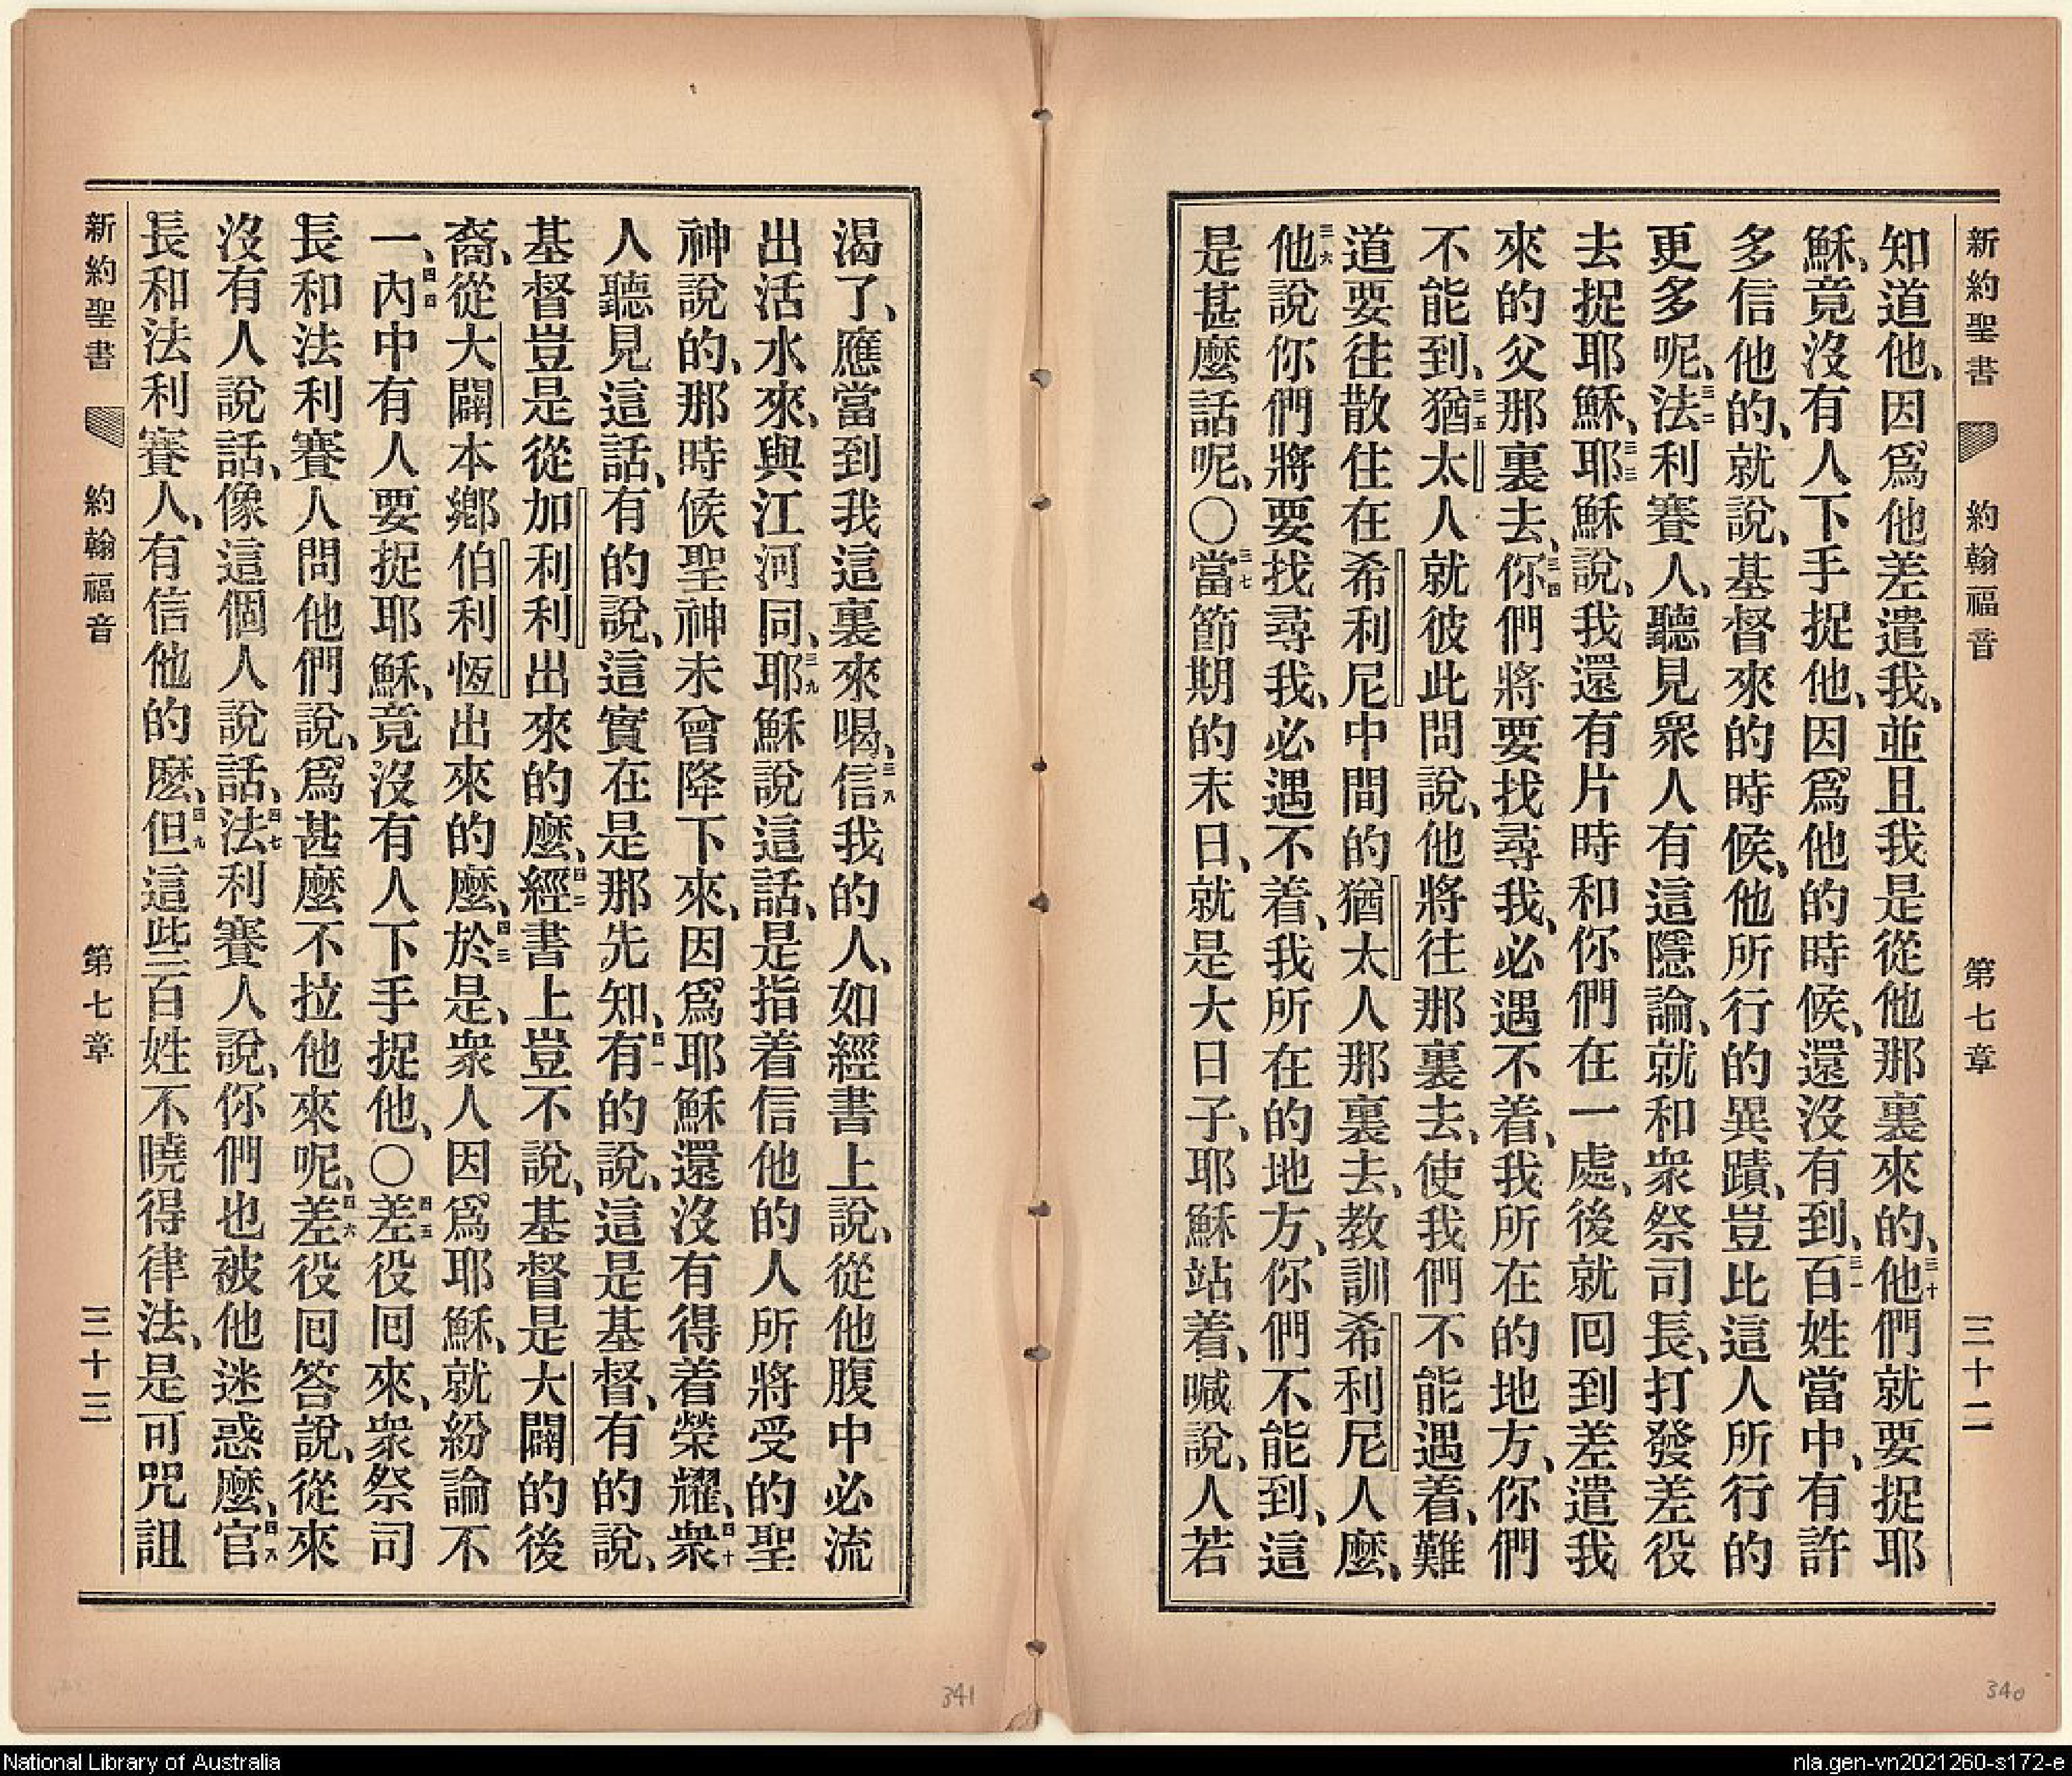 新約聖書 約翰福音 第七章 三十二
知道他、因爲他差遣我、並且我是從他那裏來的、三十他們就要捉耶
穌、竟沒有人下手捉他、因爲他的時候、還沒有到、三一百姓當中、有許
多信他的、就說、基督來的時候、他所行的異蹟、豈比這人所行的
更多呢、三二法利賽人、聽見衆人有這隱論、就和衆祭司長、打發差役
去捉耶穌、三三耶穌說、我還有片時和你們在一處、後就囘到差遣我
來的父那裏去、三四你們將要找尋我、必遇不着、我所在的地方、你們
不能到、三五猶太人就彼此問說、他將往那裏去、使我們不能遇着、難
道要往散住在希利尼中間的猶太人那裏去、教訓希利尼人麼、
三六他說你們將要找尋我、必遇不着、我所在的地方、你們不能到、這
是甚麼話呢、〇三七當節期的末日、就是大日子、耶穌站着、喊說、人若
渴了、應當到我這裏來喝、三八信我的人、如經書上說、從他腹中必流
出活水來、與江河同、三九耶穌說這話、是指着信他的人所將受的聖
神說的、那時候聖神未曾降下來、因爲耶穌還沒有得着榮耀、四十衆
人聽見這話、有的說、這實在是那先知、四一有的說、這是基督、有的說、
基督豈是從加利利出來的麼、四二經書上豈不說、基督是大闢的後
裔、從大闢本鄕伯利恆出來的麼、四三於是、衆人因爲耶穌、就紛論不
一、四四內中有人要捉耶穌、竟沒有人下手捉他、〇四五差役囘來、衆祭司
長和法利賽人問他們說、爲甚麼不拉他來呢、四六差役囘答說、從來
沒有人說話、像這個人說話、四七法利賽人說、你們也被他迷惑麼、四八官
長和法利賽人、有信他的麼、四九但這些百姓不曉得律法、是可咒詛
新約聖書 約翰福音 第七章 三十三
341
340
National Library of Australia
nla.gen-vn2021260-s172-e